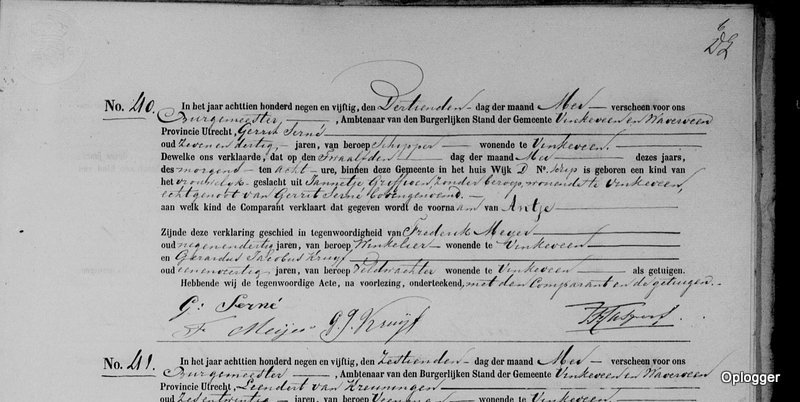 No. 40. In het jaar achttien honderd negen en vijftig, den Dertienden dag der maand Mei verscheen voor ons
Burgemeester, Ambtenaar van den Burgerlijken Stand der Gemeente Vinkeveen en Waverveen
Provincie Utrecht, Gerrit Serné
oud zevenendertig, jaren, van beroep Schipper wonende te Vinkeveen.
Dewelke ons verklaarde, dat op den Twaalfden dag der maand Mei dezes jaars,
des morgens ten acht ure, binnen deze Gemeente in het huis Wijk D No. is geboren een kind van
het vrouwelijk geslacht uit Jannetje Griffioen, zonder beroep, wonende te Vinkeveen,
echtgenoot van Gerrit Serné bovengenoemd.
aan welk kind de Comparant verklaart dat gegeven wordt de voornaam van Antje
Zijnde deze verklaring geschied in tegenwoordigheid van Frederik Meyer
oud negenendertig jaren, van beroep Winkelier wonende te Vinkeveen
en Gerardus Jacobus Kruyf
oud eenenveertig, jaren, van beroep Veldwachter wonende te Vinkeveen als getuigen.
Hebbende wij de tegenwoordige Acte, na voorlezing, onderteekend, met den Comparant en de getuigen.
G: Serné
F. Meijer G. J. Kruyf
No. 41. In het jaar achttien honderd negen en vijftig, den Zestienden dag der maand Mei verscheen voor ons
Burgemeester, Ambtenaar van den Burgerlijken Stand der Gemeente Vinkeveen en Waverveen
Provincie Utrecht, Leendert van Kreuningen
oud jaren, van beroep Veenman wonende te Vinkeveen
Oplogger